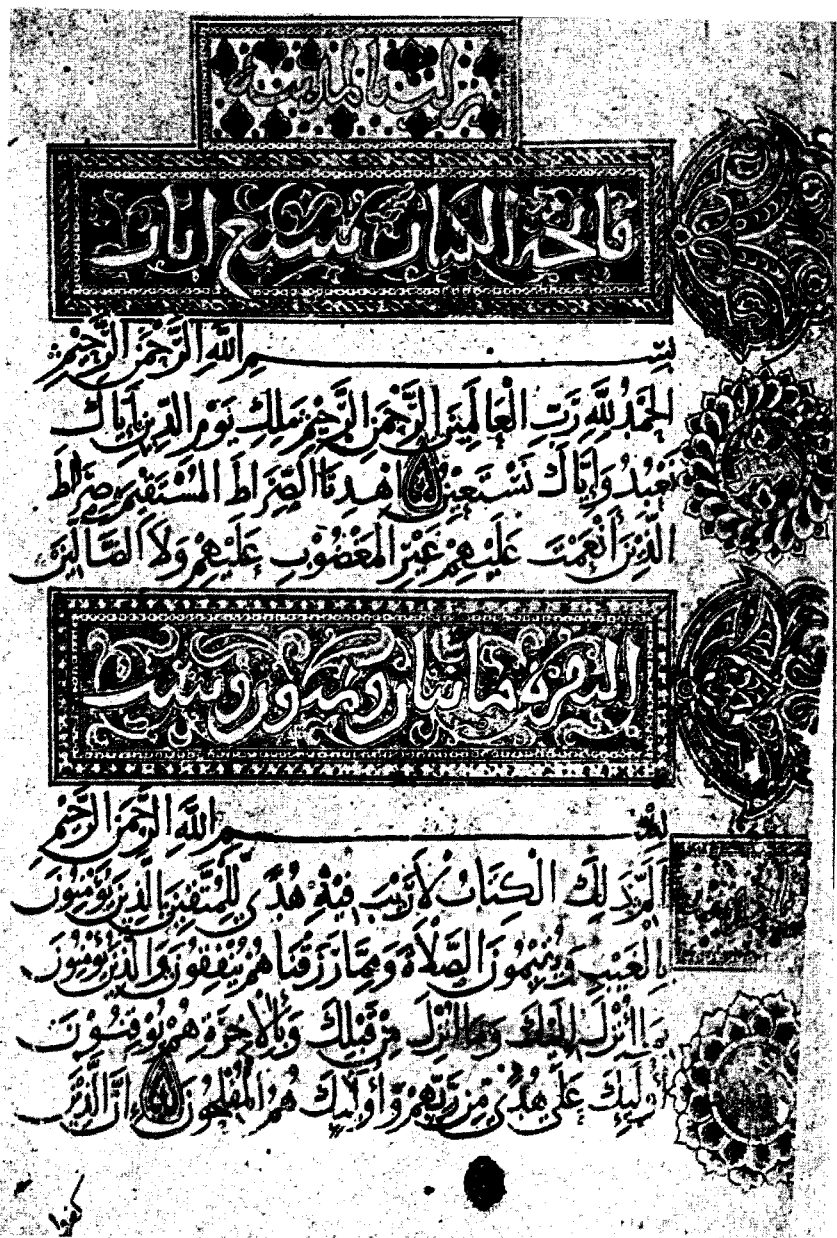 نزلت بالمدينة
فاتحة الكتاب سبع ايات
بِسْمِ اللَّهِ الرَّحْمَنِ الرَّحِيمِ
الْحَمْدُ لِلَّهِ رَبِّ الْعَالَمِينَ الرَّحْمَنِ الرَّحِيمِ مَلِكِ يَوْمِ الدِّينِ إِيَّاكَ
نَعْبُدُ وَإِيَّاكَ نَسْتَعِينُ اهْدِنَا الصِّرَاطَ الْمُسْتَقِيمَ صِرَاطَ
الَّذِينَ أَنْعَمْتَ عَلَيْهِمْ غَيْرِ الْمَغْضُوبِ عَلَيْهِمْ وَلَا الضَّالِّينَ
البقرة مايتان وثمنون وست
بِسْمِ اللَّهِ الرَّحْمَنِ الرَّحِيمِ
الَمّ ذَلِكَ الْكِتَابُ لَا رَيْبَ فِيهِ هُدًى لِلْمُتَّقِينَ الَّذِينَ يُؤْمِنُونَ
بِالْغَيْبِ وَيُقِيمُونَ الصَّلَاةَ وَمِمَّا رَزَقْنَاهُمْ يُنْفِقُونَ وَالَّذِينَ يُؤْمِنُونَ
بِمَا أُنْزِلَ إِلَيْكَ وَمَا أُنْزِلَ مِنْ قَبْلِكَ وَبِالْآخِرَةِ هُمْ يُوقِنُونَ
أُولَئِكَ عَلَى هُدًى مِنْ رَبِّهِمْ وَأُولَئِكَ هُمُ الْمُفْلِحُونَ إِنَّ الَّذِينَ
كفروا